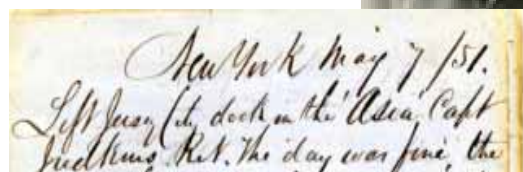 New York May 7 /51.
Left Jersy City dock in the "Asia" Capt
Judkins. R.N. The day was fine, the